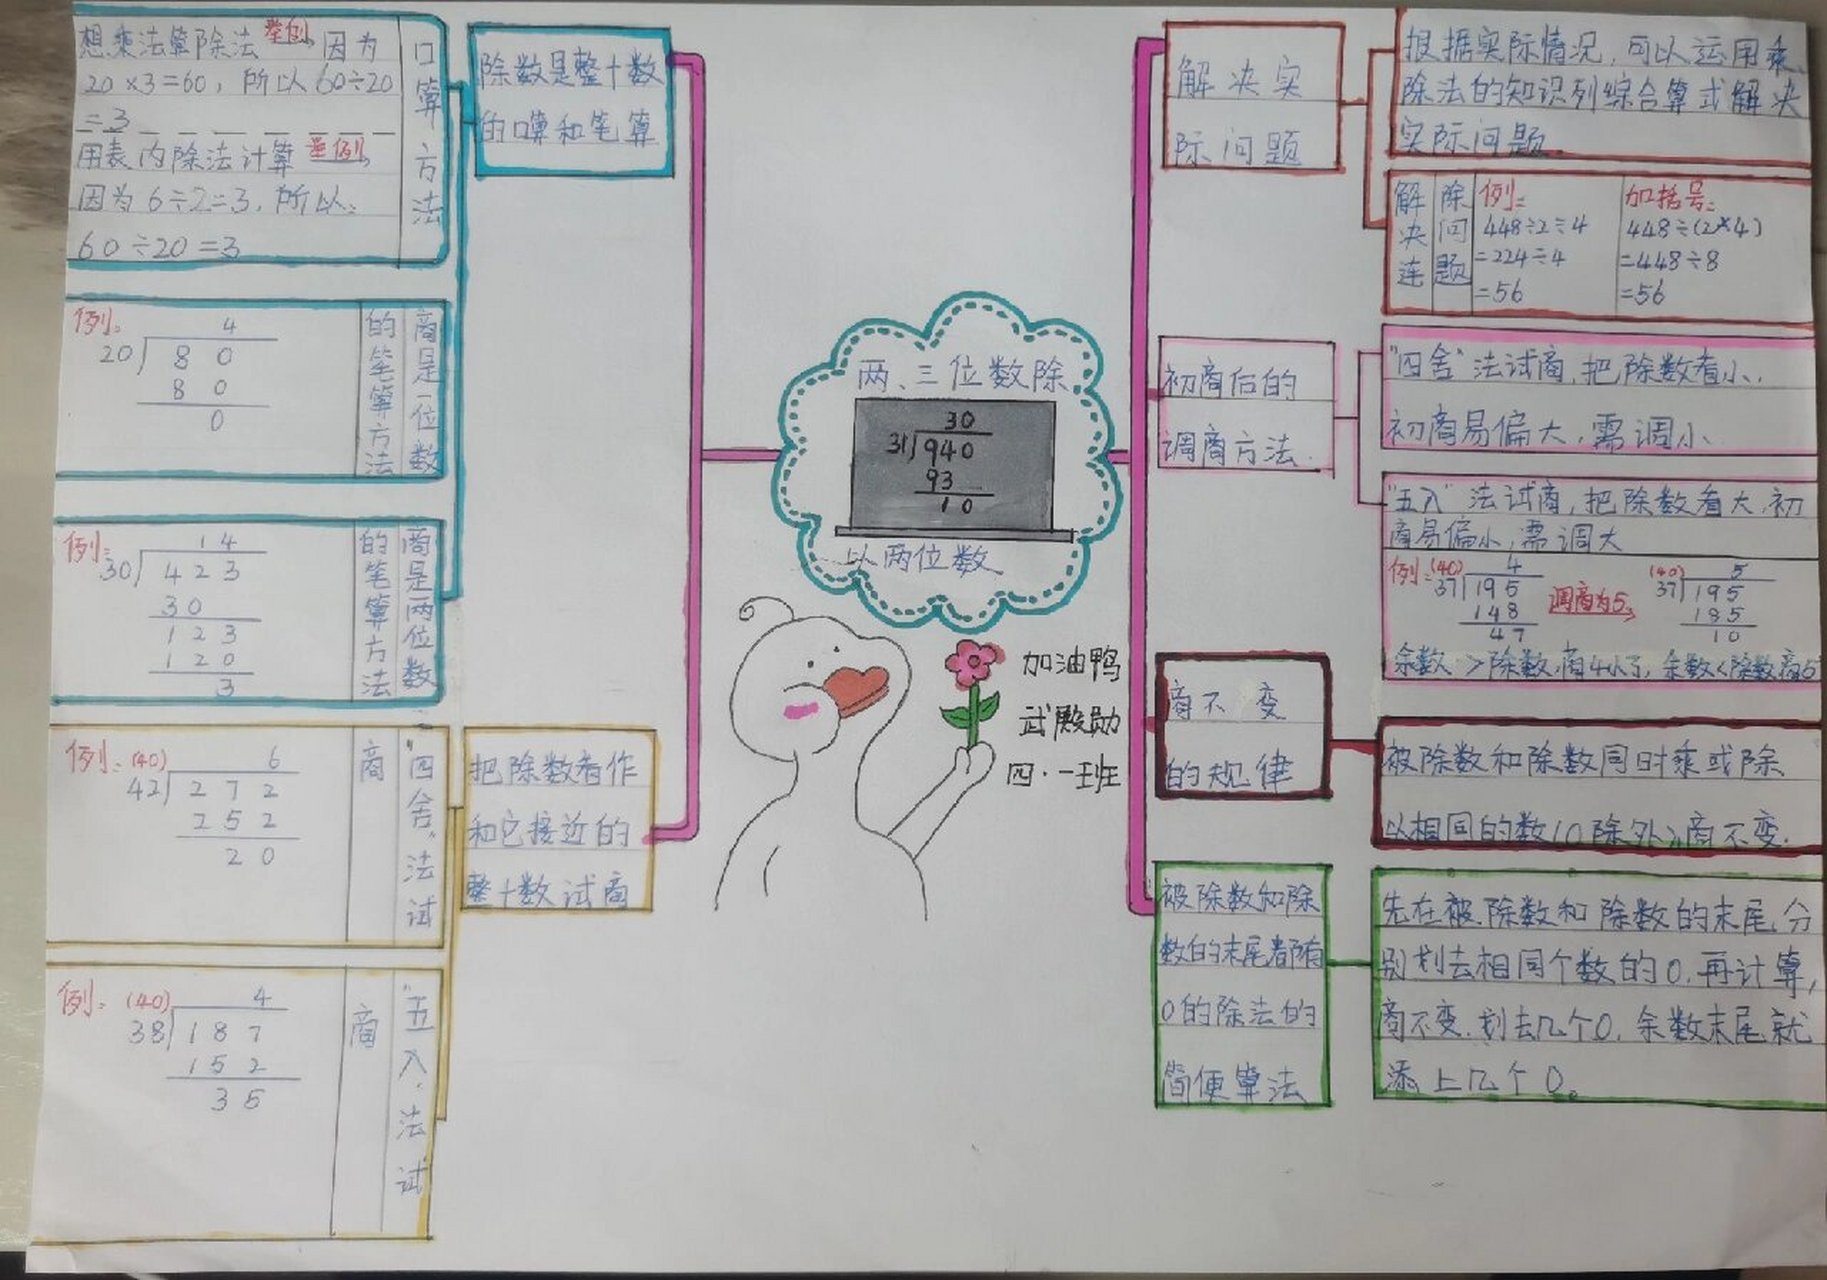 想乘法算除法 举例: 因为
20×3=60, 所以 60÷20
=3
用表内除法计算 举例:
因为 6÷2=3, 所以:
60÷20=3
口算方法
除数是整十数
的口算和笔算
例:
4
20 8 0
8 0
0
商是一位数
的笔算方法
例:
1 4
30 4 2 3
3 0
1 2 3
1 2 0
3
商是两位数
的笔算方法
把除数看作
和它接近的
整十数试商
例: (40) 6
42 2 7 2
2 5 2
2 0
“四舍”法试
商
例: (40) 4
38 1 8 7
1 5 2
3 5
“五入”法试
商
两、三位数除
30
31 940
93
10
以两位数
加油鸭
武殿勋
四·一班
解决实
际问题
根据实际情况,可以运用乘、
除法的知识列综合算式解决
实际问题。
解决连
除问题
例:
448÷2÷4
=224÷4
=56
加括号:
448÷(2×4)
=448÷8
=56
初商后的
调商方法.
“四舍”法试商,把除数看小,
初商易偏大,需调小、
“五入”法试商,把除数看大,初
商易偏小,需调大
例: (40) 4
37 195
148
47
调商为5,
(40) 5
37 195
185
10
余数>除数,商4小了, 余数<除数,商5
商不变
的规律
被除数和除数同时乘或除
以相同的数(0除外),商不变.
被除数和除
数的末尾都有
0的除法的
简便算法
先在被除数和除数的末尾,分
别划去相同个数的0,再计算,
商不变.划去几个0,余数末尾就
添上几个0。